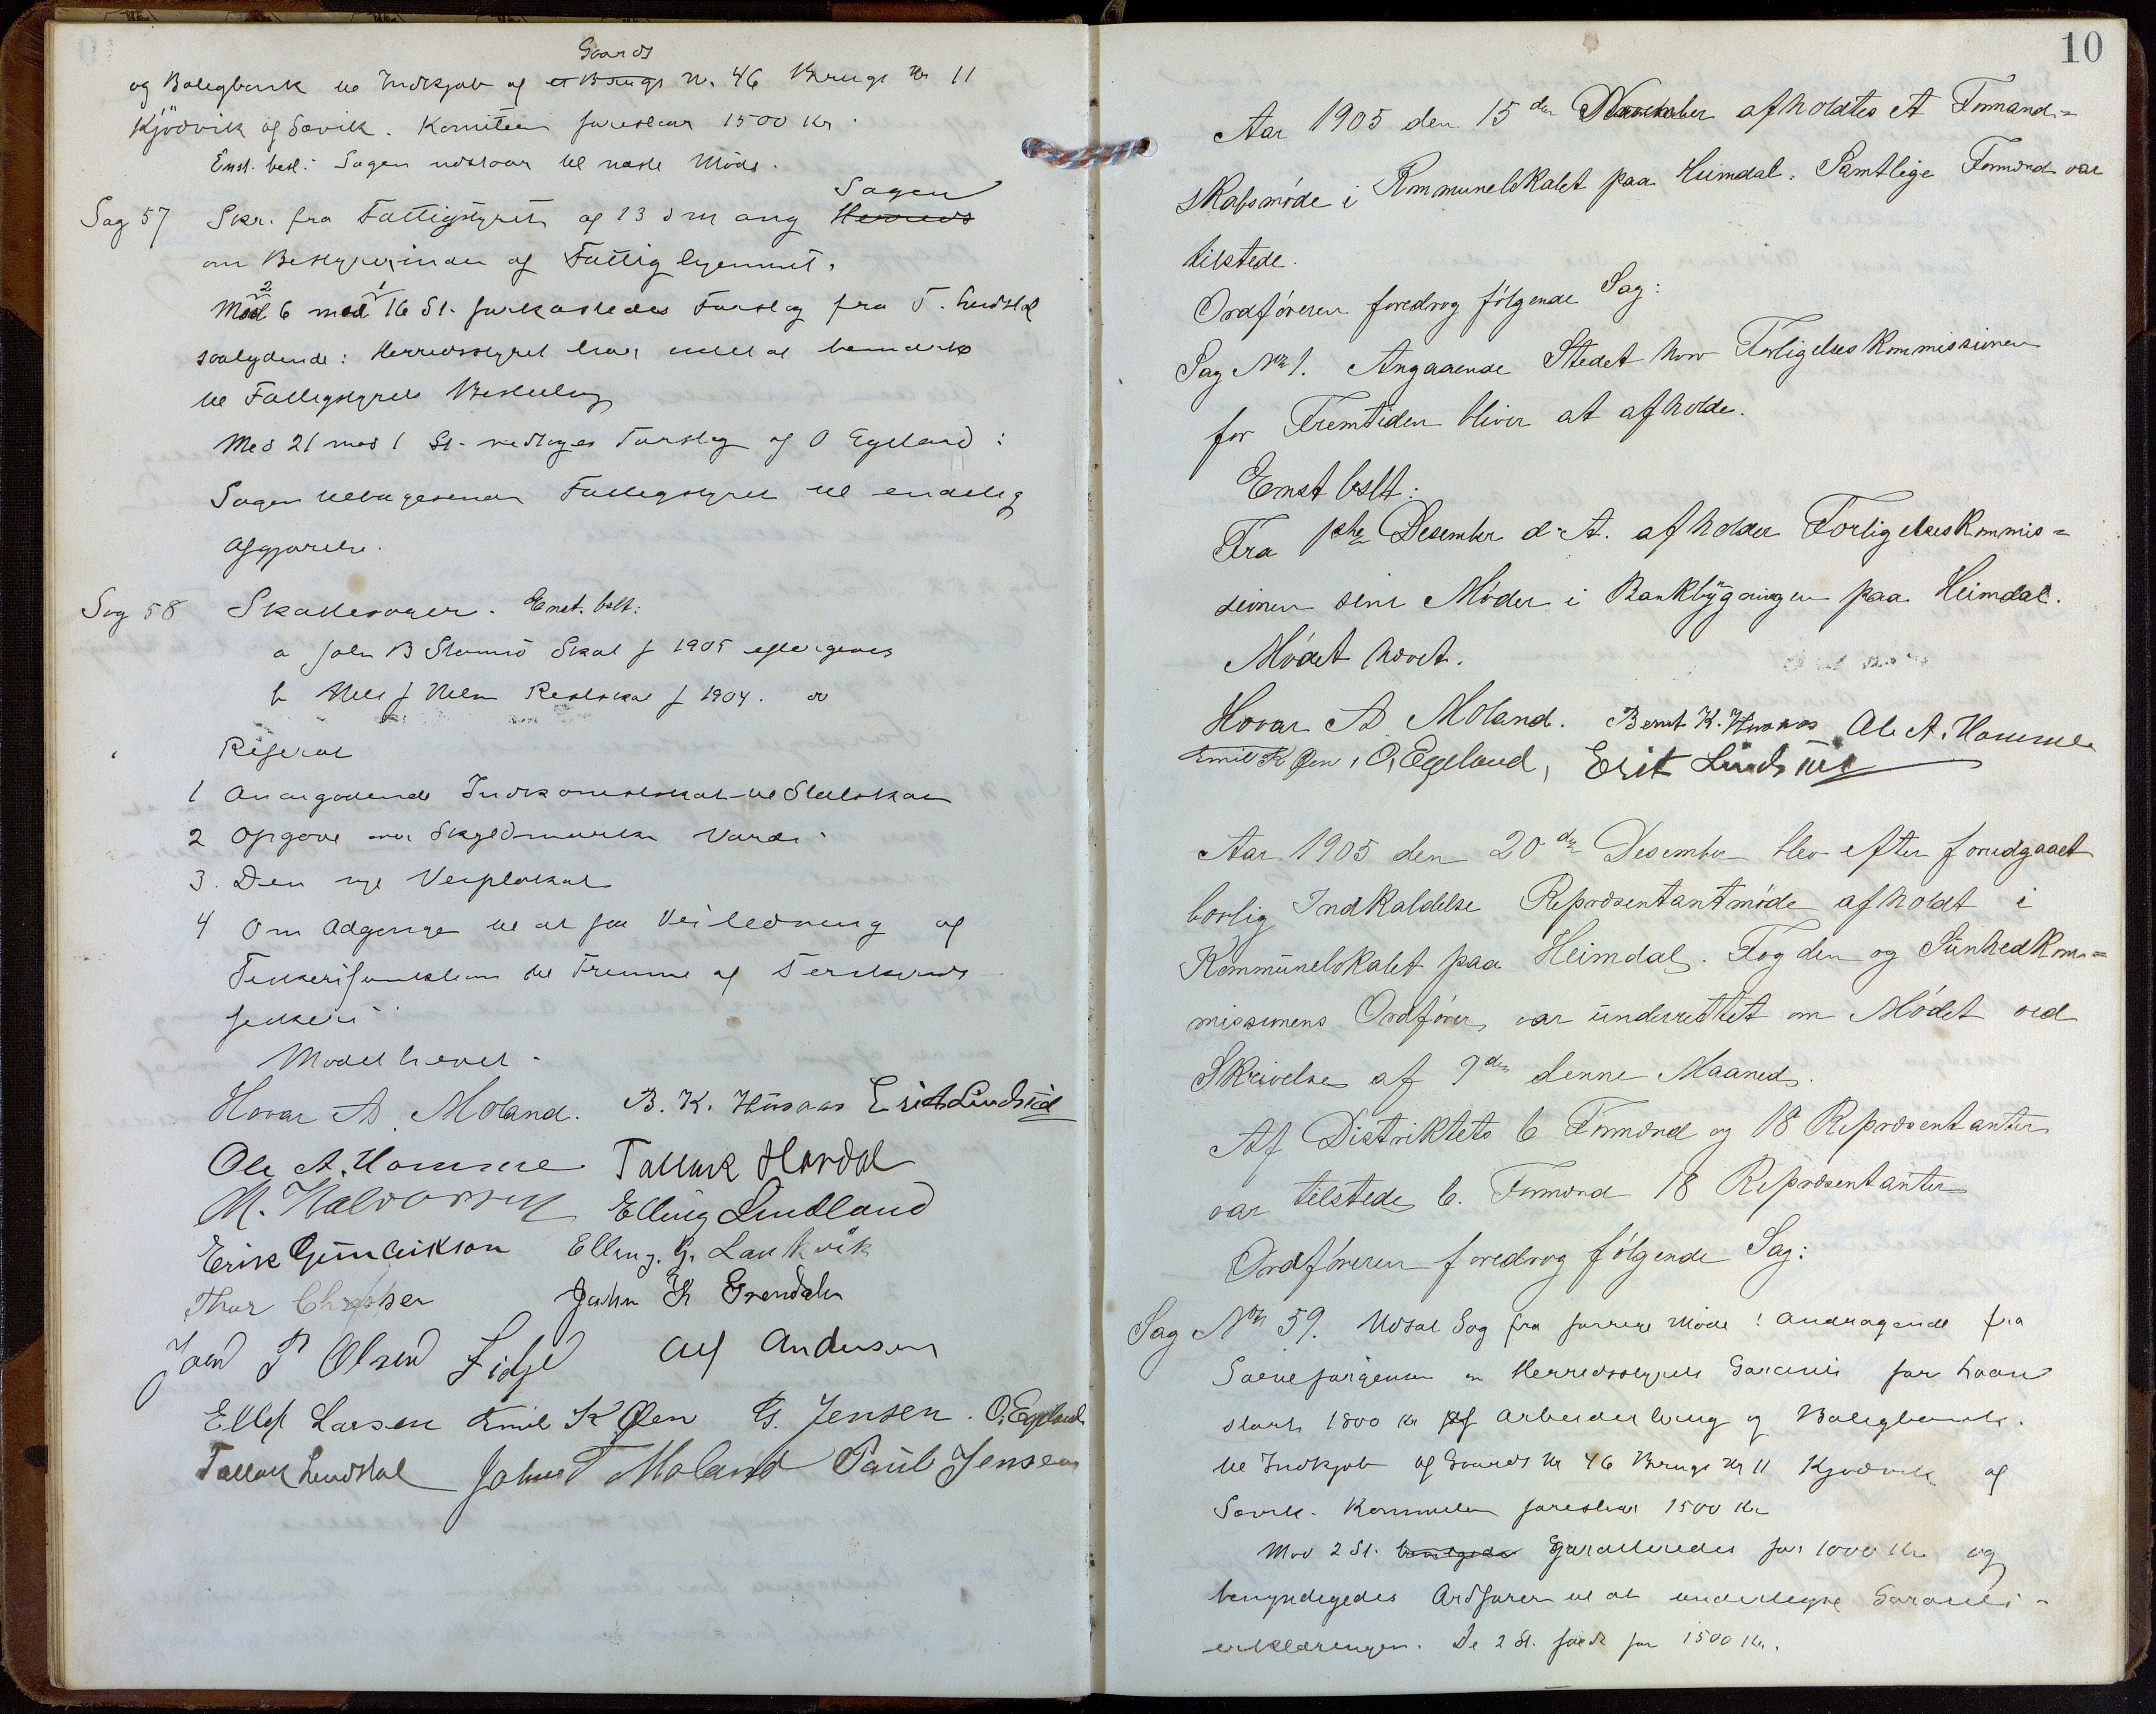 og Boligbank til Indkjøb af et Brugs Gaards Nr. 46 Brugs Nr 11
Kjødvik af Sævik. Komiteen foreslaar 1500 Kr.
Enst. besl.: Sagen udstaar til næste Møde.
Sag 57 Skr. fra Fattigstyret af 13 d m ang Herreds Sagen
om Bestyrerinden af Fattighjemmet.
Med 6 mod 16 St. forkastedes Forslag fra T. Lindstøl
saalydende: Herredsstyret har intet at bemærke
til Fattigstyrets Beslutning
Med 21 mod 1 St. vedtoges Forslag af O Egeland:
Sagen tilbagesendes Fattigstyret til endelig
Afgjørelse.
Sag 58 Skattesager. Enst. beslt:
a John B Skat f 1905 eftergives
b Restskat f 1904. do
Referat
1 Indkomstskat til Statskassen
2 Opgave over Skyldmarkens Værdi
3. Den nye Veiplakat
4 Om Adgange til at faa Veiledning og
til Fremme af Ferskvands
fiskeri
Mødet hævet.
Hovar A. Moland. B. K. Husaas Erik Lindstøl
Ole A. Homme Tallak Hardal
M. Halvorsen Elling Lindland
Erik Gundersen Elling. G. Laukvik
Thor John K Grendalen
Jørn P Olsen Fidje Alf Andersen
Ellef Larsen Emil K Øen G. Jensen. O. Egeland
Tallak Lindstøl John T Moland Paul Jensen
10
Aar 1905 den 15de November afholdtes et Formand-
skabsmøde i Kommunelokalet paa Heimdal. Samtlige Formænd var
tilstede.
Ordføreren foredrog følgende Sag:
Sag No 1. Angaaende Stedet hvor Forligelseskommissionen
for Fremtiden bliver at afholde.
Enst beslt:
Fra 1ste Desember d. A. afholder Forligelseskommis=
sionen sine Møder i Bankbygningen paa Heimdal.
Mødet hævet.
Hovar A Moland. Bernt K. Husaas Ole A. Homme
Emil K Øen, O, Egeland, Erik Lindstøl
Aar 1905 den 20de Desember blev efter forudgaaet
lovlig Indkaldelse Repræsentantmøde afholdt i
Kommunelokalet paa Heimdal. Fogden og Sunhedkom=
missionens Ordfører var underrettet om Mødet ved
Skrivelse af 9de denne Maaned.
Af Distriktets 6 Formænd og 18 Repræsentanter
var tilstede 6. Formænd 18 Repræsentanter
Ordføreren foredrog følgende Sag:
Sag No 59. Udsat Sag fra forrige Møde: Andragende fra
Herredsstyrets Garanti for Laan
stort 1800 Kr af Arbeiderbrug og Boligbank.
til Indkjøb af Gaards Nr 46 Brugs Nr 11 Kjødvik af
Sævik. Komiteen foreslaar 1500 Kr
Mod 2 St. bevilgedes garanteredes for 1000 Kr og
bemyndigedes Ordfører til at undertegne Garanti-
erklæringen. De 2 St. faldt for 1500 Kr.